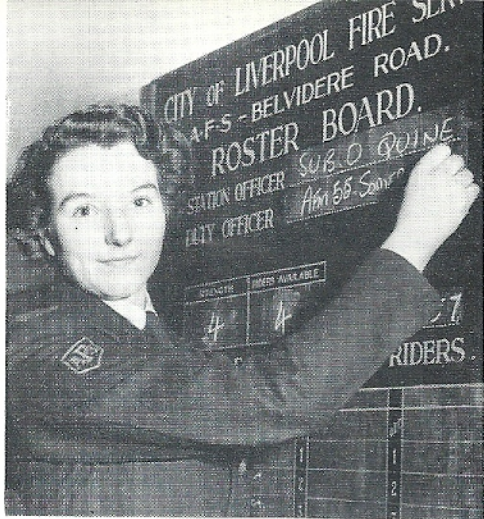 CITY OF LIVERPOOL FIRE SER
A·F·S - BELVIDERE ROAD.
ROSTER BOARD.
STATION OFFICER SUB.O QUINE
DUTY OFFICER
STRENGTH RIDERS AVAILABLE
4 4
RIDERS.
1 1
2 2
3